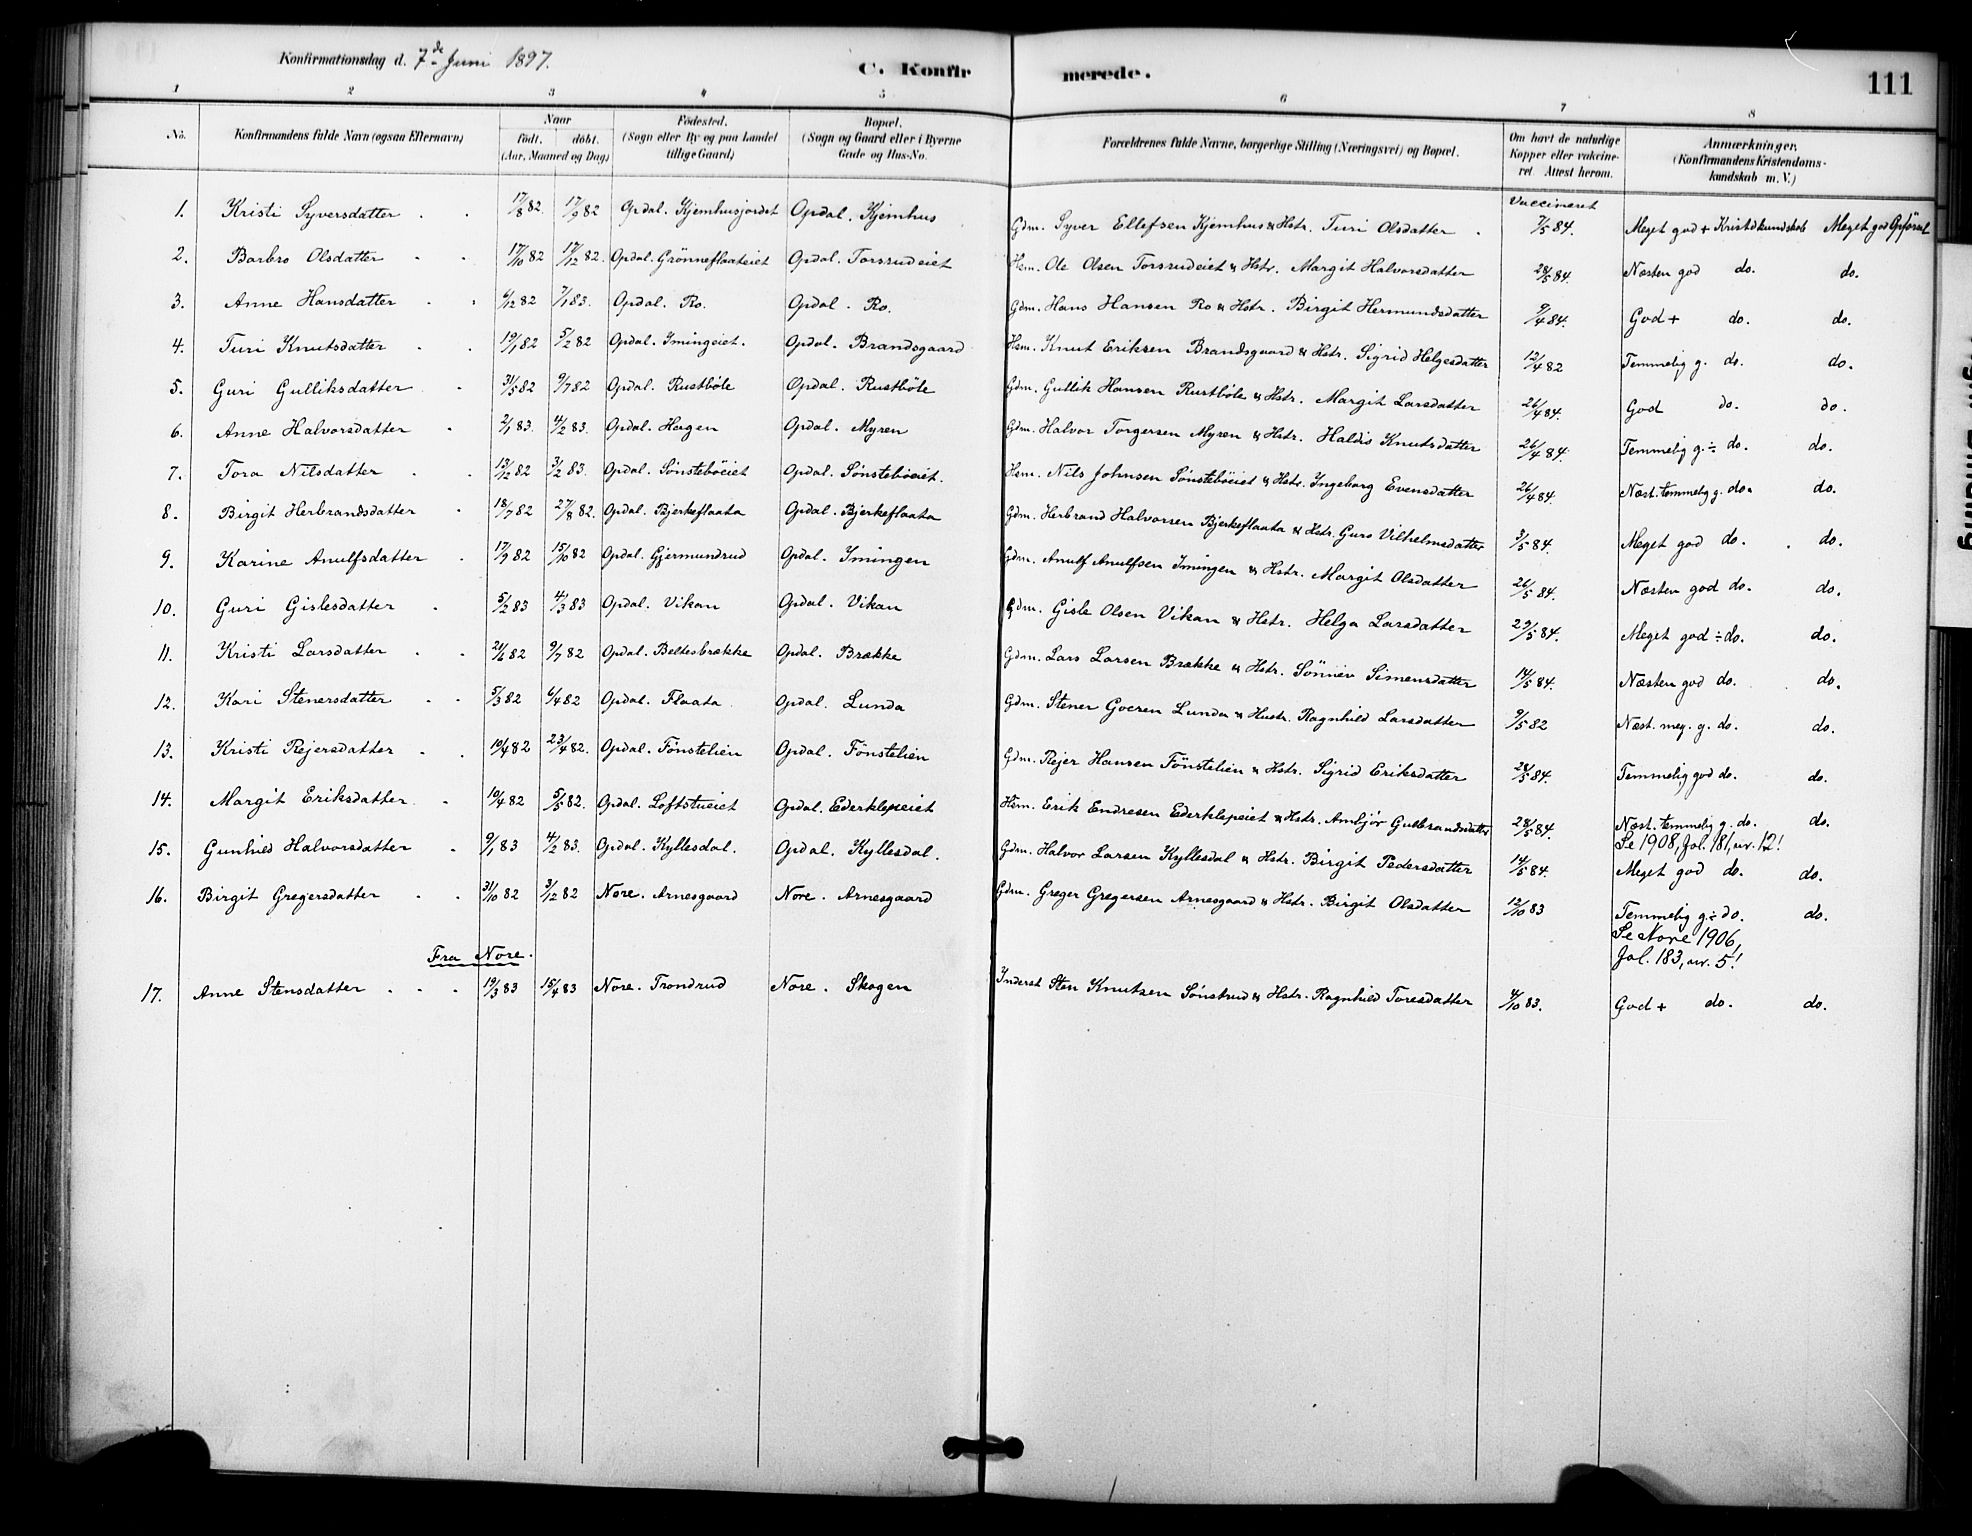 Konfirmationsdag d. 7de Juni 1897.
C. Konfirmerede.
111
1 2 3 4 5 6 7 8
No. Konfirmandens fulde Navn (ogsaa Efternavn) Naar født. døbt. (Aar, Maaned og Dag) Fødested. (Sogn eller By og paa Landet tillige Gaard) Bopæl. (Sogn og Gaard eller i Byerne Gade og Hus-No. Forældrenes fulde Navne, borgerlige Stilling (Næringsvei) og Bopæl. Om havt de naturlige Kopper eller vakcineret. Attest herom. Anmærkninger, (Konfirmandens Kristendomskundskab m. V.)
Vaccineret
1. Kristi Syversdatter 17/8 82. 17/9 82 Opdal. Kjemhusjordet Opdal. Kjemhus Gdm. Syver Ellefsen Kjemhus & Hstr. Turi Olsdatter 7/5 84. Meget god + Kristdkundskab Meget god Opførsel
2. Barbro Olsdatter 17/10 82 17/12 82. Opdal. Grönneflaateiet Opdal. Torsrudeiet Hsm. Ole Olsen Torsrudeiet & Hstr. Margit Halvorsdatter 28/5 84. Næsten god do. do.
3. Anne Hansdatter 6/12 82 7/1 83. Opdal. Ro. Opdal. Ro. Gdm. Hans Hansen Ro & Hstr. Birgit Hermundsdatter 9/4 84. God + do. do.
4. Turi Knutsdatter 19/1 82 5/2 82 Opdal. Imingeiet. Opdal. Brandsgaard Hsm. Knut Eriksen Brandsgaard & Hstr. Sigrid Helgesdatter 12/4 82 Temmelig g. do. do.
5. Guri Gulliksdatter 31/5 82 9/7 82 Opdal. Rustböle Opdal. Rustböle Gdm. Gullik Hansen Rustböle & Hstr. Margit Larsdatter 26/4 84. God do. do.
6. Anne Halvorsdatter 2/1 83. 4/2 83. Opdal. Hagen Opdal. Myren Gdm. Halvor Torgersen Myren & Hstr. Haldis Knutsdatter 26/4 84. Temmelig g. ÷ do. do.
7. Tora Nilsdatter 13/12 82 3/2 83. Opdal. Sönsteböeiet Opdal. Sönsteböeiet. Hsm. Nils Johnsen Sönsteböeiet & Hstr. Ingeborg Evensdatter 26/4 84. Næst. temmelig g. do. do.
8. Birgit Herbrandsdatter 18/7 82 27/8 82. Opdal. Bjerkeflaata Opdal. Bjerkeflaata Gdm. Herbrand Halvorsen Bjerkeflaata & Hstr. Guro Vilhelmsdatter 3/5 84. Meget god do. do.
9. Karine Anulfsdatter 17/9 82 15/10 82 Opdal. Gjermundrud Opdal. Imingen Gdm. Anulf Anulfsen Imingen & Hstr. Margit Olsdatter 26/5 84. Næsten god do. do.
10. Guri Gislesdatter 5/2 83 4/3 83 Opdal. Vikan Opdal. Vikan Gdm. Gisle Olsen Vikan & Hstr. Helga Larsdatter 29/5 84. Meget god ÷ do. do.
11. Kristi Larsdatter 21/6 82 9/7 82 Opdal. Beltesbrække Opdal. Brække Gdm. Lars Larsen Brække & Hstr. Sönnev Simensdatter 14/5 84. Næsten god do. do.
12. Kari Stenersdatter 5/3 82 6/4 82 Opdal. Flaata Opdal. Lunda Gdm. Stener Goeren Lunda & Hustr. Ragnhild Larsdatter 9/5 82 Næst. meg. g. do. do.
13. Kristi Rejersdatter 10/4 82 23/4 82. Opdal. Fönstelien Opdal. Fönstelien Gdm. Rejer Hansen Fönstelien & Hstr. Sigrid Eriksdatter 28/5 84. Temmelig god do. do.
14. Margit Eriksdatter 10/4 82 5/5 82. Opdal. Loftstueiet Opdal. Ederklepeiet Hsm. Erik Endresen Ederklepeiet & Hstr. Ambjør Gulbrandsdatter 28/5 84. Næst. temmelig g. do. do.
Se 1908, fol. 181, nr. 12!
15. Gunhild Halvorsdatter 9/1 83 4/2 83. Opdal. Kyllesdal. Opdal. Kyllesdal. Gdm. Halvor Larsen Kyllesdal & Hstr. Birgit Pedersdatter 14/5 84. Meget god do. do.
16. Birgit Gregersdatter 31/10 82 3/12 82 Nore. Arnesgaard Nore. Arnesgaard Gdm. Greger Gregersen Arnesgaard & Hstr. Birgit Olsdatter 12/10 83 Temmelig g. ÷ do. do.
Se Nore 1906,
fol. 183, nr. 5!
Fra Nore.
17. Anne Stensdatter 19/3 83 15/4 83 Nore. Trondrud Nore. Skogen Inderst Sten Knutsen Sönstrud & Hstr. Ragnhild Toresdatter 4/10 83. God + do. do.